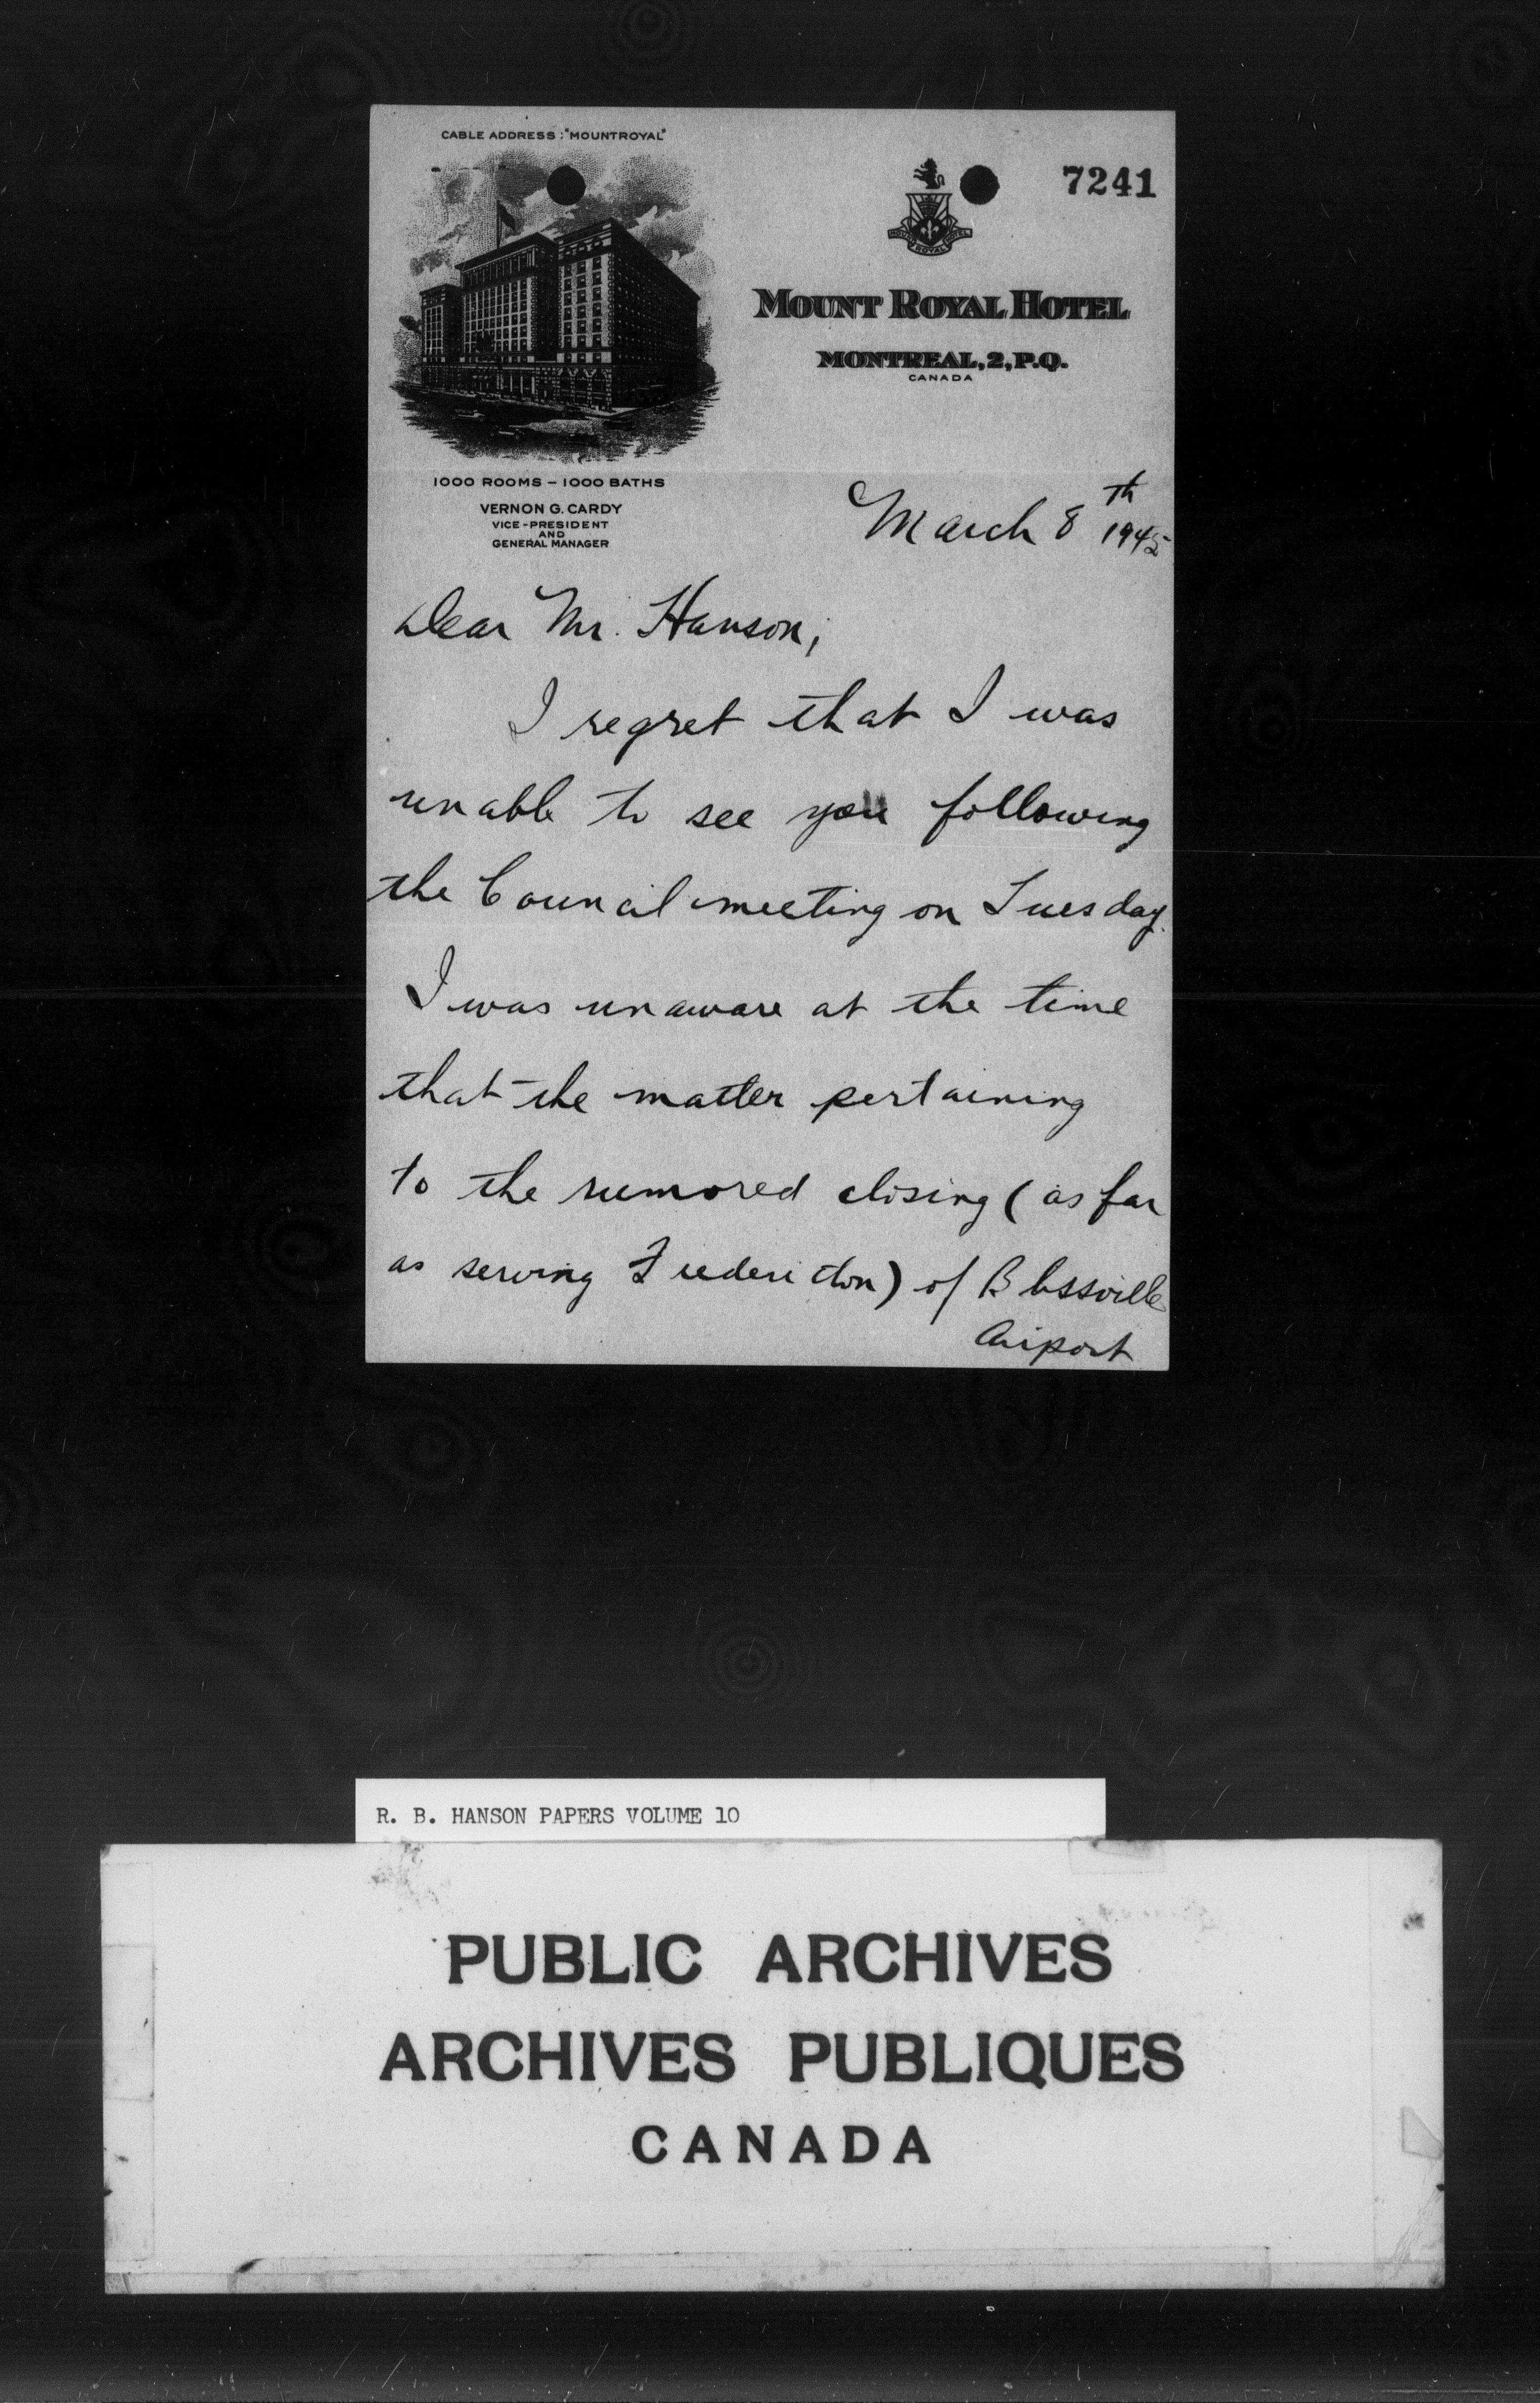 CABLE ADDRESS: "MOUNTROYAL"
7241
MOUNT ROYAL HOTEL
MOUNT ROYAL HOTEL
MONTREAL, 2, P.Q.
CANADA
1000 ROOMS – 1000 BATHS
VERNON G. CARDY
VICE-PRESIDENT
AND
GENERAL MANAGER
March 8th 1945
Dear Mr. Hanson,
I regret that I was
unable to see you following
the Council meeting on Tuesday.
I was unaware at the time
that the matter pertaining
to the rumored closing (as far
as serving Fredericton) of Blissville
Airport
R. B. HANSON PAPERS VOLUME 10
PUBLIC ARCHIVES
ARCHIVES PUBLIQUES
CANADA